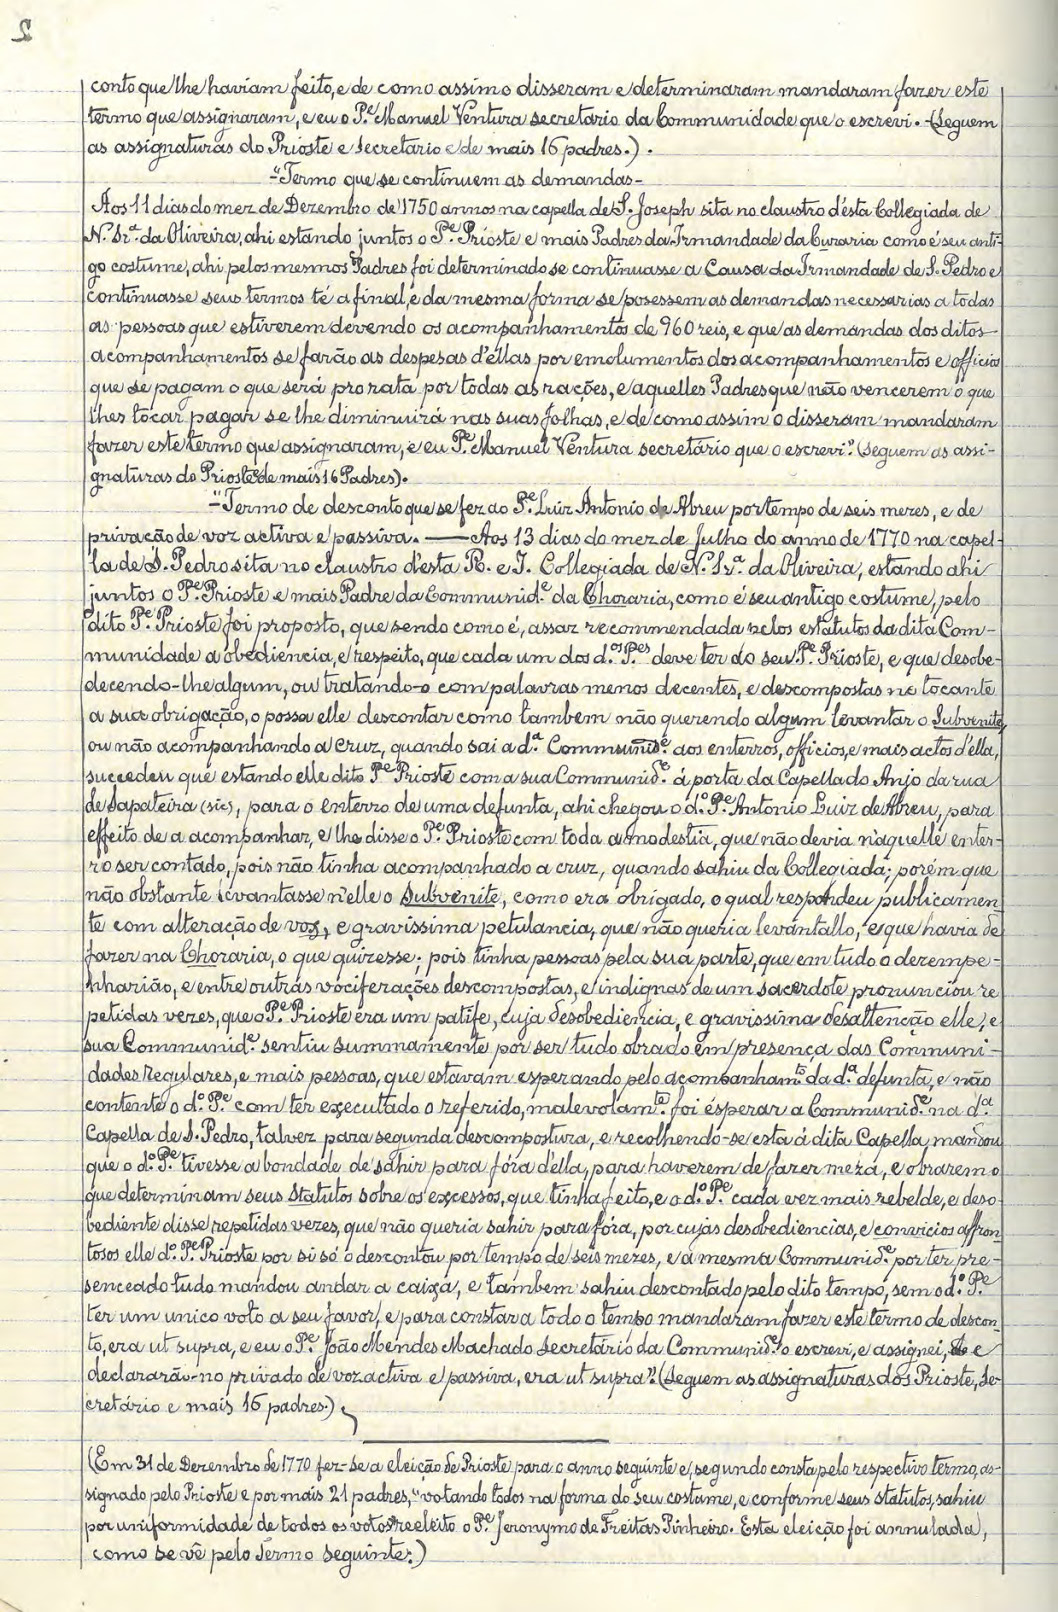 2
conto que lhe haviam feito, e de como assim o disseram e determinaram mandaram fazer este
termo que assignaram, e eu o P.e Manuel Ventura secretario da Communidade que o escrevi. (Seguem
as assignaturas do Prioste e secretário e de mais 16 padres.) .
"Termo que se continuem as demandas-
Aos 11 dias do mez de Dezembro de 1750 annos na capella de S. Joseph sita no claustro d'esta Collegiada de
N. Sr.a da Oliveira, ahi estando juntos o P.e Prioste e mais Padres da Irmandade da Curaria como é seu anti-
go costume, ahi pelos mesmos Padres foi determinado se continuasse a Causa da Irmandade de S. Pedro e
continuasse seus termos té a final, e da mesma forma se posessem as demandas necessarias a todas
as pessoas que estiverem devendo os acompanhamentos de 960 reis, e que as demandas dos ditos
acompanhamentos se farão as despesas d'éllas por emolumentos dos acompanhamentos e officios
que se pagam o que será pro rata por todas as rações, e aquelles Padres que não vencerem o que
lhes tocar pagar se lhe diminuirá nas suas folhas, e de como assim o disseram mandaram
fazer este termo que assignaram, e eu P.e Manuel Ventura secretário que o escrevi." (Seguem as assi-
gnaturas do Prioste e de mais 16 Padres).
-"Termo de desconto que se fez ao P.e Luiz Antonio de Abreu por tempo de seis mezes, e de
privação de voz activa e passiva. — Aos 13 dias do mez de Julho do anno de 1770 na capel-
la de S. Pedro sita no claustro d'esta R. e I. Collegiada de N. Sr.a da Oliveira, estando ahi
juntos o P.e Prioste e mais Padre da Communid.e da Choraria, como é seu antigo costume, pelo
dito P.e Prioste foi proposto, que sendo como é, assaz recommendada pelos estatutos da dita Com-
munidade a obediencia, e respeito, que cada um dos d.os P.es deve ter ao seu P.e Prioste, e que desobe-
decendo-lhe algum, ou tratando-o com palavras menos decentes, e descompostas no tocante
a sua obrigação, o possa elle descontar como tambem não querendo algum levantar o Subvenite,
ou não acompanhando a cruz, quando sai a d.a Communid.e aos enterros, officios, e mais actos d'ella,
succedeu que estando elle dito P.e Prioste com a sua Communid.e á porta da Capella do Anjo da rua
de Sapateira (sic), para o enterro de uma defunta, ahi chegou o d.o P.e Antonio Luiz de Abreu, para
effeito de a acompanhar, e lhe disse o P.e Prioste com toda a modestia, que não devia n'aquelle enter-
ro ser contado, pois não tinha acompanhado a cruz, quando sahiu da Collegiada; porém que
não obstante levantasse n'elle o Subvenite, como era obrigado, o qual respondeu publicamen-
te com alteração de voz, e gravissima petulancia, que não queria levantallo, e que havia de
fazer na Choraria, o que quizesse; pois tinha pessoas pela sua parte, que em tudo o dezempe-
nharião, e entre outras vociferações descompostas, e indignas de um sacerdote pronunciou re
petidas vezes, que o P.e Prioste era um patife, cuja desobediencia, e gravissima desattenção elle, e
sua Communid.e sentiu summamente por ser tudo obrado em presença das Communi-
dades regulares, e mais pessoas, que estavam esperando pelo acompanham.to da d.a defunta, e não
contente o d.o P.e com ter executado o referido, malevolam.te foi ésperar a Communid.e na d.a
Capella de S. Pedro, talvez para segunda descompostura, e recolhendo-se esta á dita Capella, mandou
que o d.o P.e tivesse a bondade de sahir para fóra d'ella, para haverem de fazer meza, e obrarem o
que determinam seus statutos sobre os excessos, que tinha feito, e o d.o P.e cada vez mais rebelde, e deso-
bediente disse repetidas vezes, que não queria sahir para fóra, por cujas desobediencias, e convicios affron
tosos elle d.o P.e Prioste por si só o descontou por tempo de seis mezes, e a mesma Communid.e por ter pre-
senceado tudo mandou andar a caixa, e tambem sahiu descontado pelo dito tempo, sem o d.o P.e
ter um unico voto a seu favor, e para constar a todo o tempo mandaram fazer este termo de descon
to, era ut supra, e eu o P.e João Mendes Machado secretário da Communid.e o escrevi, e assignei, e
declararão-no privado de voz activa e passiva, era ut supra". (Seguem as assignaturas dos Prioste, se-
cretário e mais 16 padres.)
(Em 31 de Dezembro de 1770 fez-se a eleição de Prioste para o anno seguinte e, segundo consta pelo respectivo termo, as-
signado pelo Prioste e por mais 21 padres, "votando todos na forma do seu costume, e conforme seus statutos, sahiu
por uniformidade de todos os votos reeleito o P.e Jeronymo de Freitas Pinheiro. Esta eleição foi annulada,
como se vê pelo Termo seguinte:)